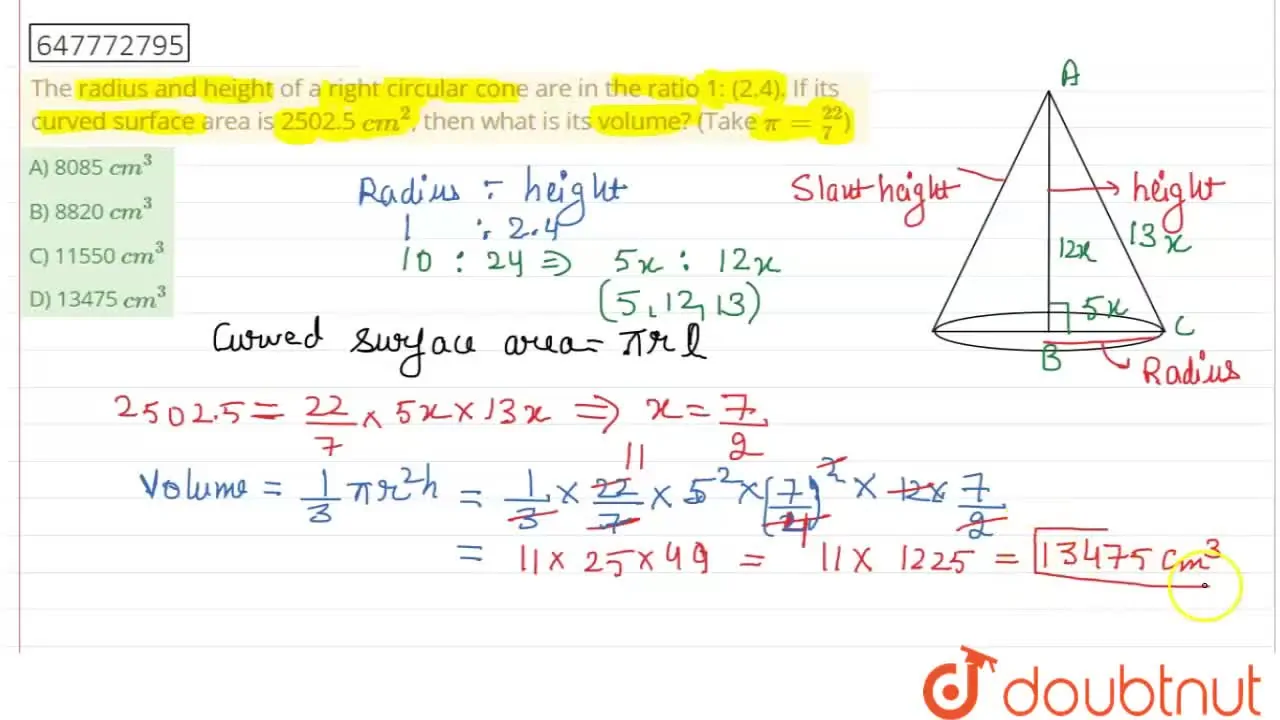 647772795
The radius and height of a right circular cone are in the ratio 1: (2.4). If its
curved surface area is 2502.5 cm², then what is its volume? (Take π = 22/7)
A) 8085 cm³
B) 8820 cm³
C) 11550 cm³
D) 13475 cm³
Radius : height
1 : 2.4
10 : 24 ⇒ 5x : 12x
(5, 12, 13)
A
Slant height
height
13x
12x
5x
B
C
Radius
Curved surface area = πrl
2502.5 = 22/7 × 5x × 13x ⇒ x = 7/2
11
Volume = 1/3 πr²h = 1/3 × 22/7 × 5² × (7/2)² × 12 × 7/2
= 11 × 25 × 49 = 11 × 1225 = 13475 cm³
doubtnut